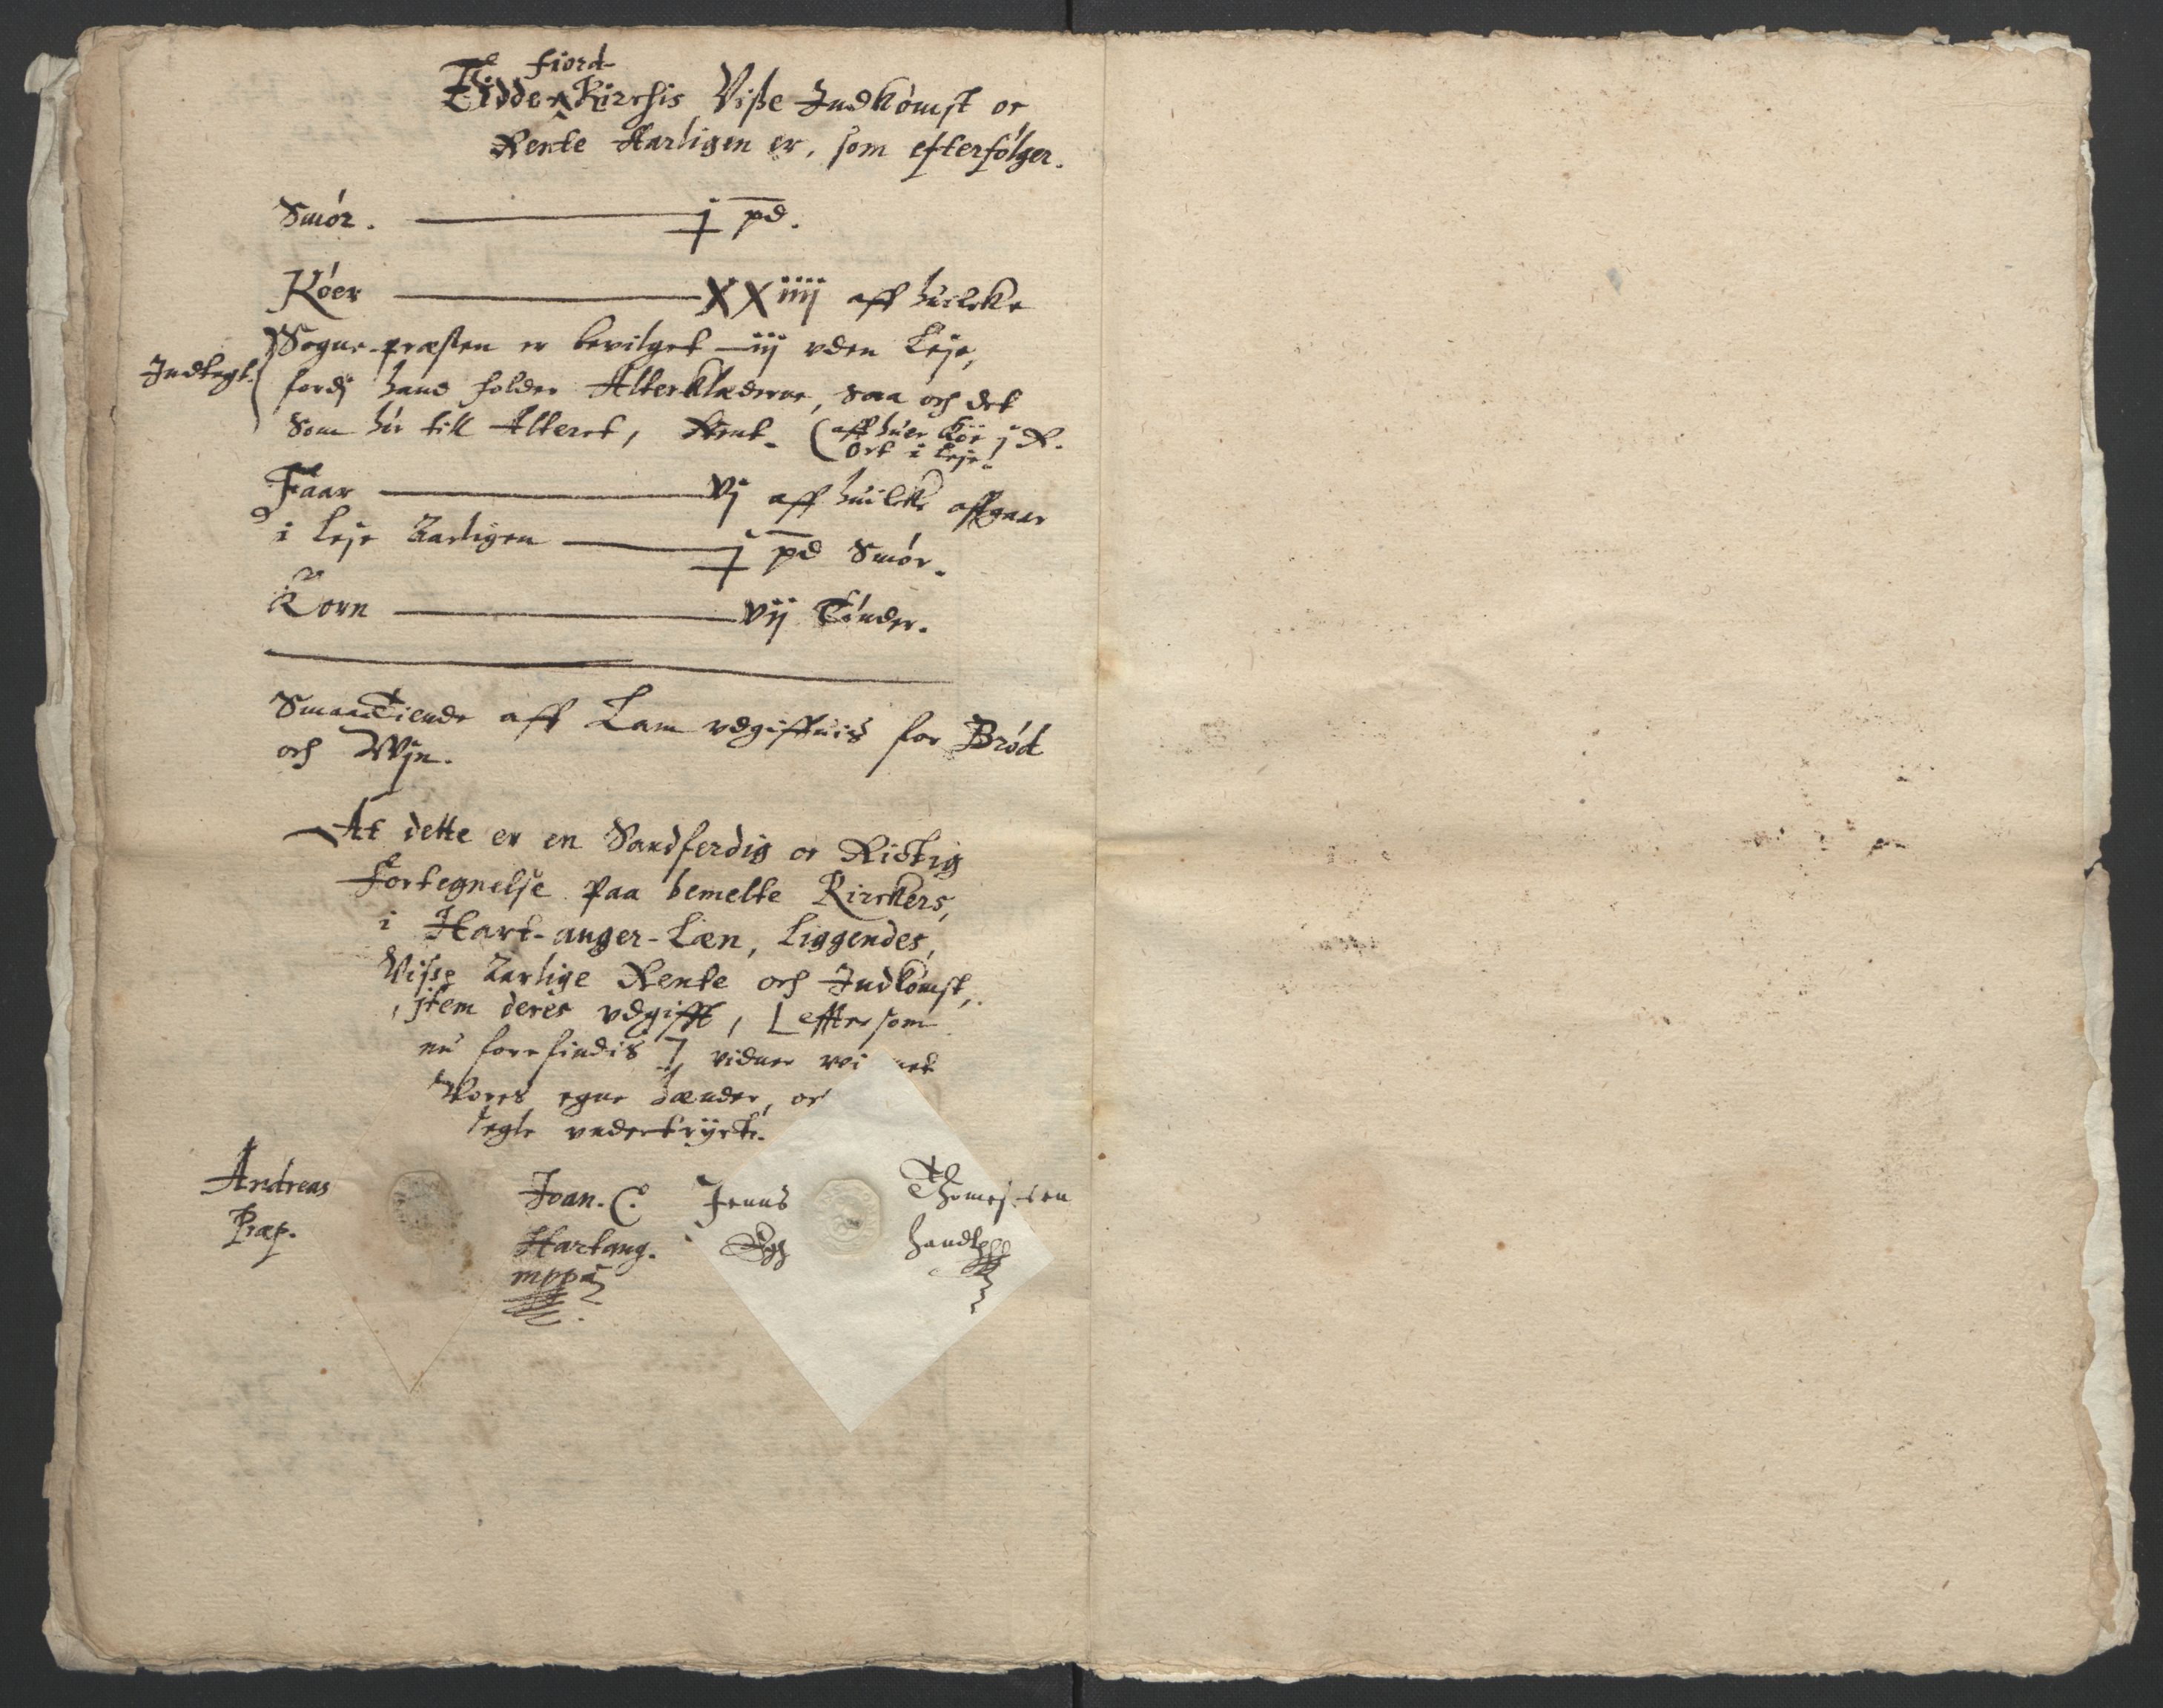 fiord-
Eidde Kirchis Visse Indkomst oc
Rente Aarligen er, som efterfølger.
Smór. j pd.
Kóer XXiiij aff huilcke
Sogne-præsten er bevilget iij uden Leje,
Indtegt.
fordj hand holder Alterklæderne, saa och det
som hör till Alteret, Rent. (aff huer Kör j R.
Ort i leje.
Faar vj aff huilcke affgaar
i leje Aarligen j pd Smór.
Korn vij Tónder.
Smaa Tiende aff Lam udgiffuis for Bród
och Wjn.
At dette er en Sandferdig oc Rictig
fortegnelse paa bemelte Kirckers,
i Hart-anger-Læn, liggendes,
Visse Aarlige Rente och Indkomst,
jtem deres udgifft, effter som
nu forefindis, vidner wi met
Vores egne Hænder, oc
segle undertryckt.
Andreas
Præp.
Joan. C.
Hartang.
mppa
Jenns Thomessen
Egh handt